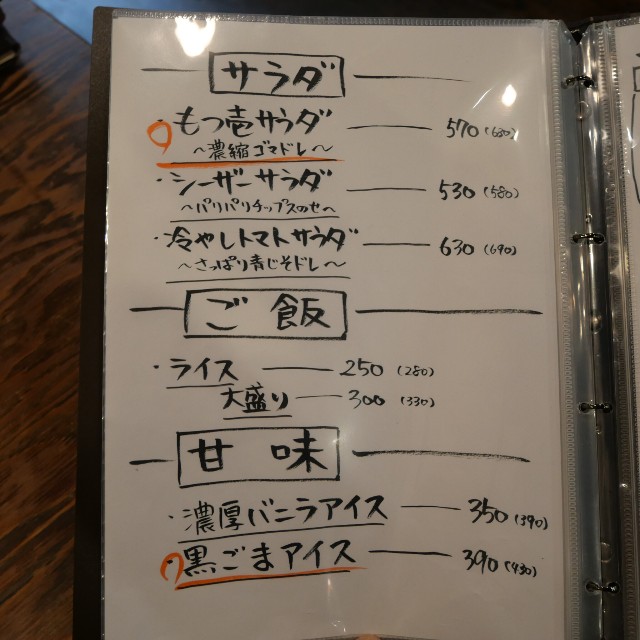 サラダ
・もつ壱サラダ 570(630)
～濃縮ゴマドレ～
・シーザーサラダ 530(580)
～パリパリチップスのせ～
・冷やしトマトサラダ 630(690)
～さっぱり青じそドレ～
ご飯
・ライス 250(280)
大盛り 300(330)
甘味
・濃厚バニラアイス 350(390)
黒ごまアイス 390(430)